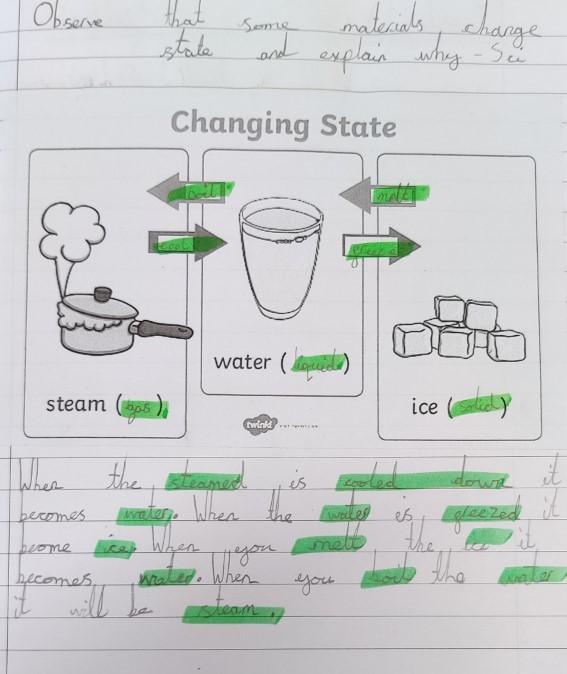 Observe that some materials change
state and explain why - Sci
Changing State
boil
melt
cool
freeze
water (liquid)
steam (gas)
ice (solid)
twinkl
When the steamed is cooled down it
becomes water. When the water is freezed it
beome ice. When you melt the ice it
becomes water. When you boil the water
it will be steam.